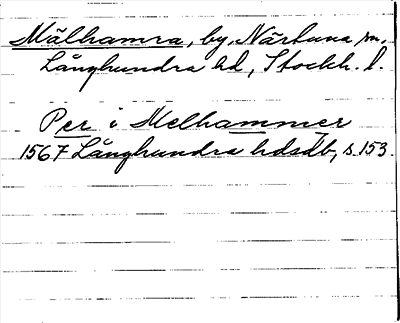 Mälhamra, by, Närtuna sn,
Långhundra hd, Stockh. l.
Per i Melhammer
1567 Långhundra hdsdb, s. 153.